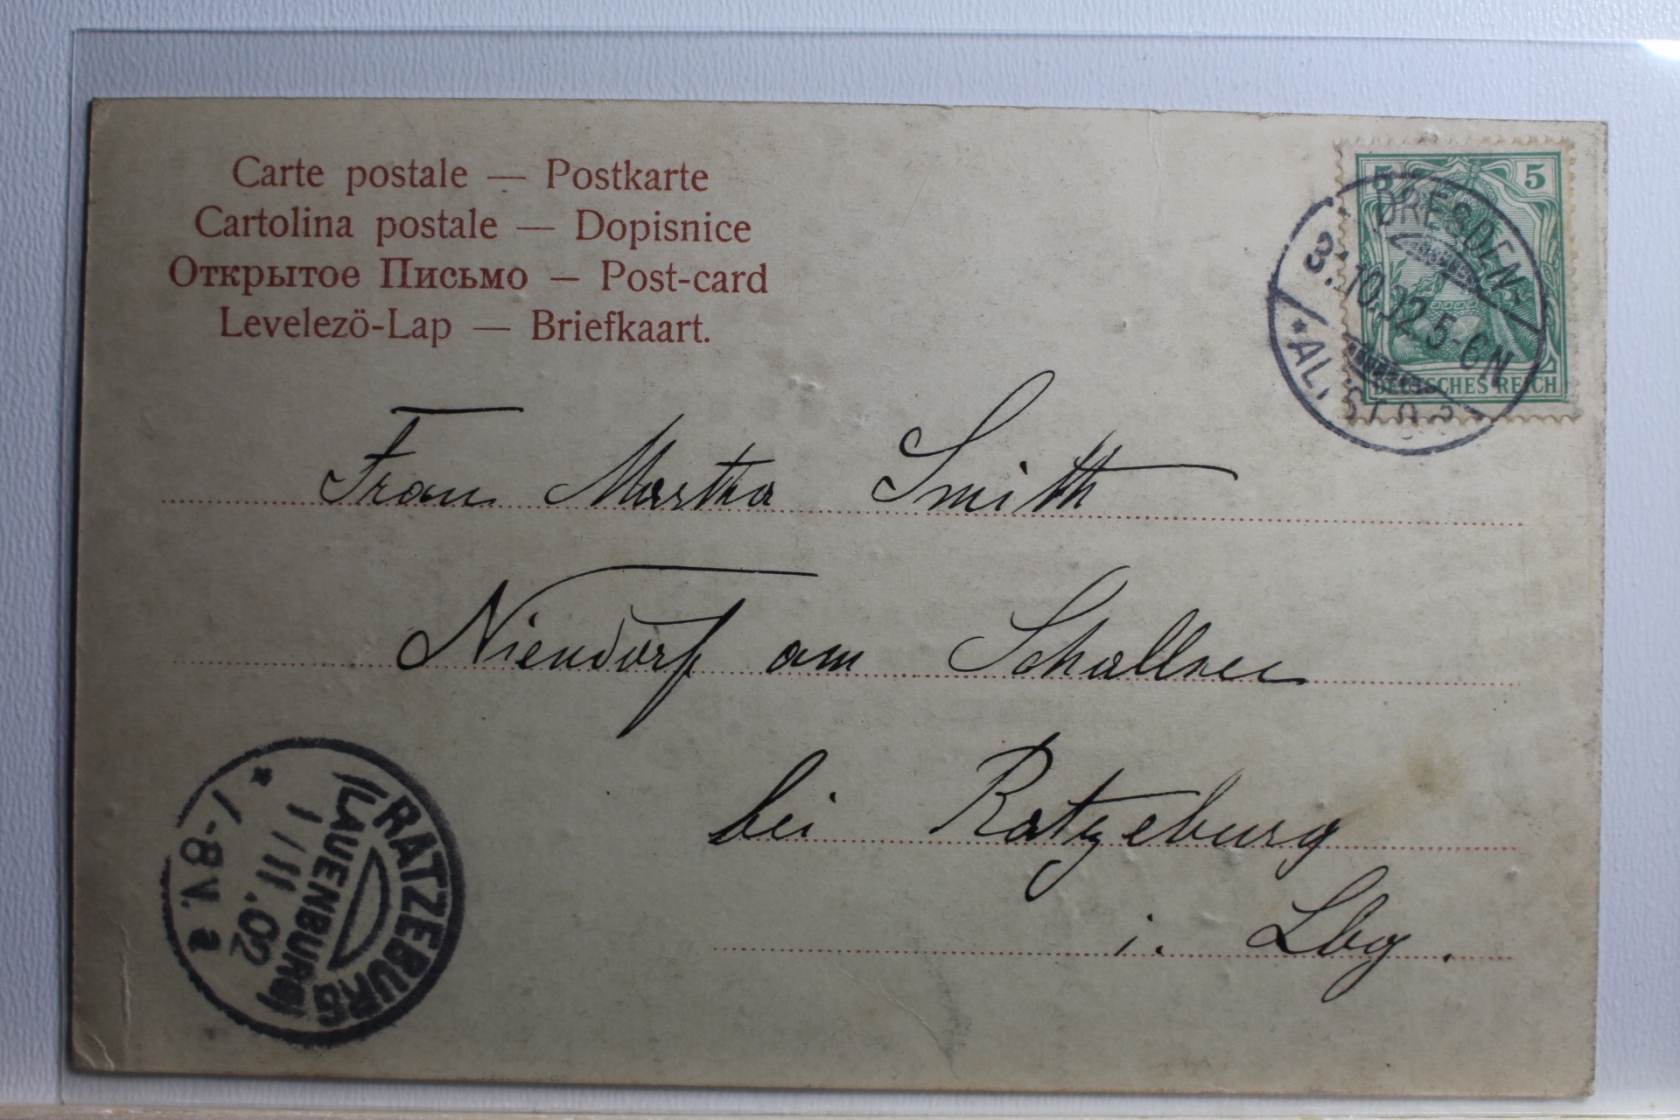 Carte postale — Postkarte
Cartolina postale — Dopisnice
Открытое Письмо — Post-card
Levelezö-Lap — Briefkaart.
5 5
DRESDEN
10.02.5-6N
*ALTST.
DEUTSCHES REICH
Frau Martha Smith
Niendorf am Schallsee
bei Ratzeburg
i. Lbg.
RATZEBURG
(LAUENBURG)
1/11.02
*7-8V. a